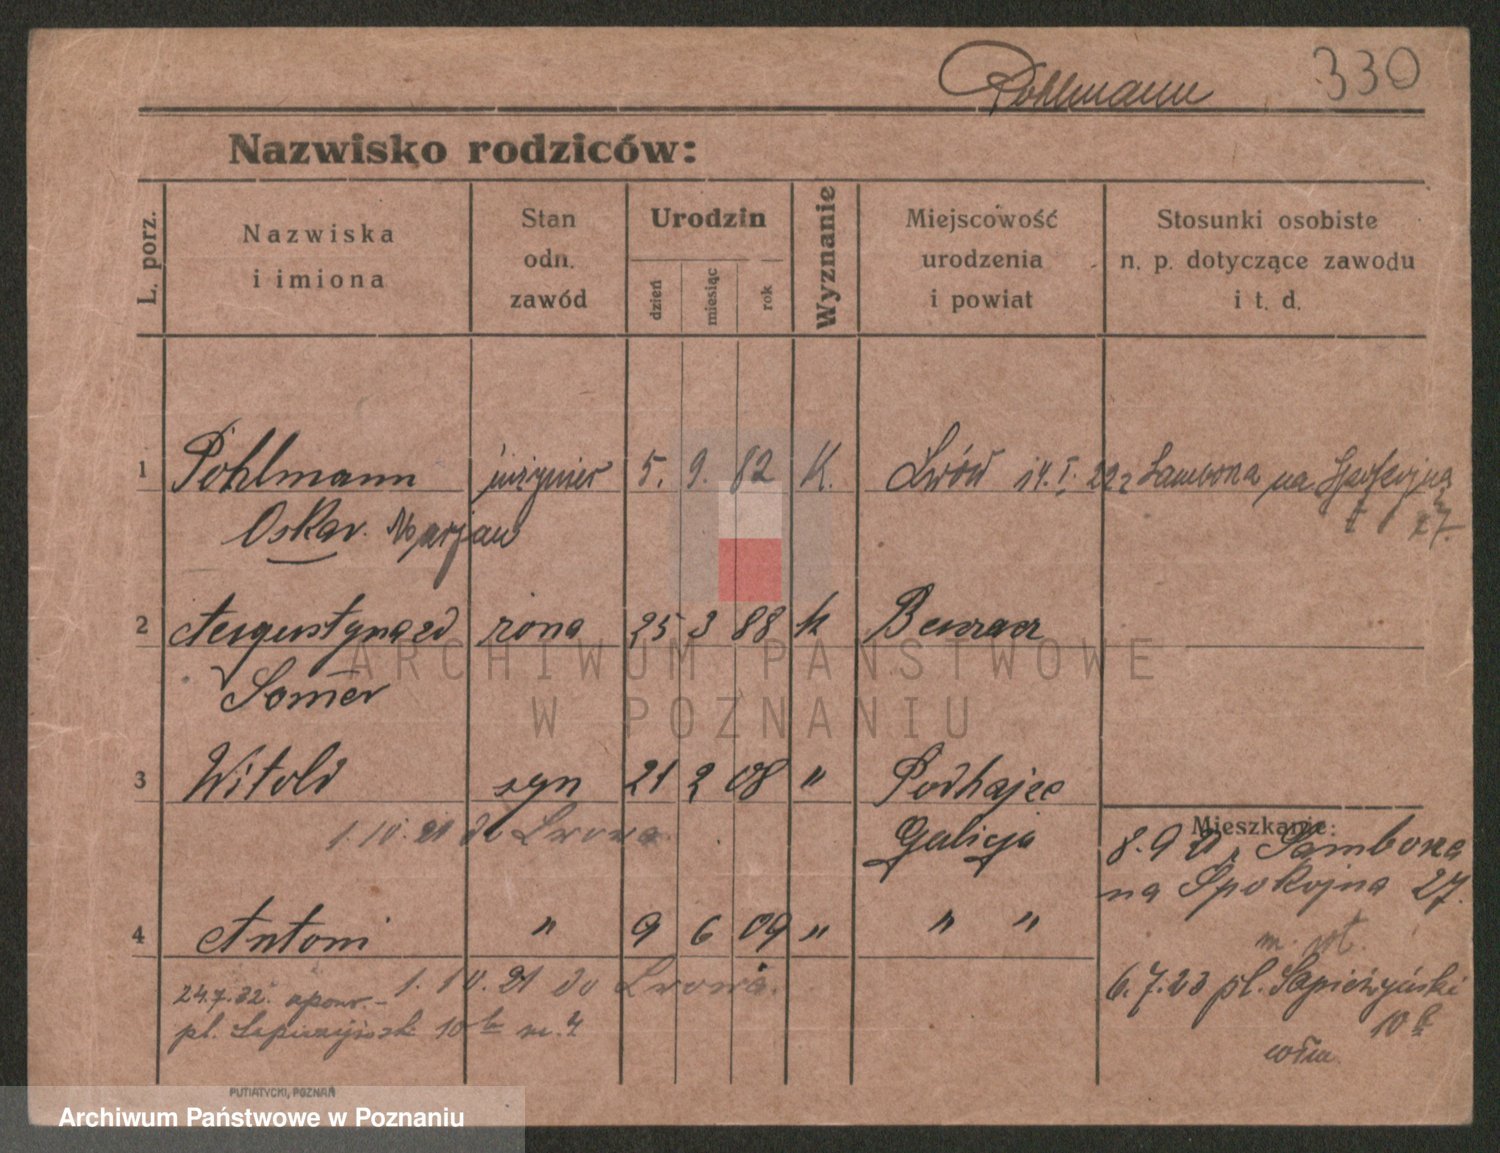 Pohlmann 330
Nazwisko rodziców:
L. porz.
Nazwiska
i imiona
Stan
odn.
zawód
Urodzin
dzień
miesiąc
rok
Wyznanie
Miejscowość
urodzenia
i powiat
Stosunki osobiste
n. p. dotyczące zawodu
i t. d.
1 Pohlmann inżynier 5. 9. 82 K. Lwów 14. I. 22 z Samborska na Spokojną
Oskar. Marjan 27.
2 żona 25 3 88 k
3 Witold syn 21 2 08 " Podhajce
1. 10. 21 do Lwowa Galicja
Mieszkanie:
8. 9 21 Samborska
na Spokojna 27.
4 Antoni " 9 6 09 " " "
1. 10. 21 do Lwowa.
6.7.23 pl. Sapieżyński
10
24.7.32.
pl. Sapieżyński 10
PUTIATYCKI, POZNAŃ
ARCHIWUM PAŃSTWOWE
W POZNANIU
Archiwum Państwowe w Poznaniu